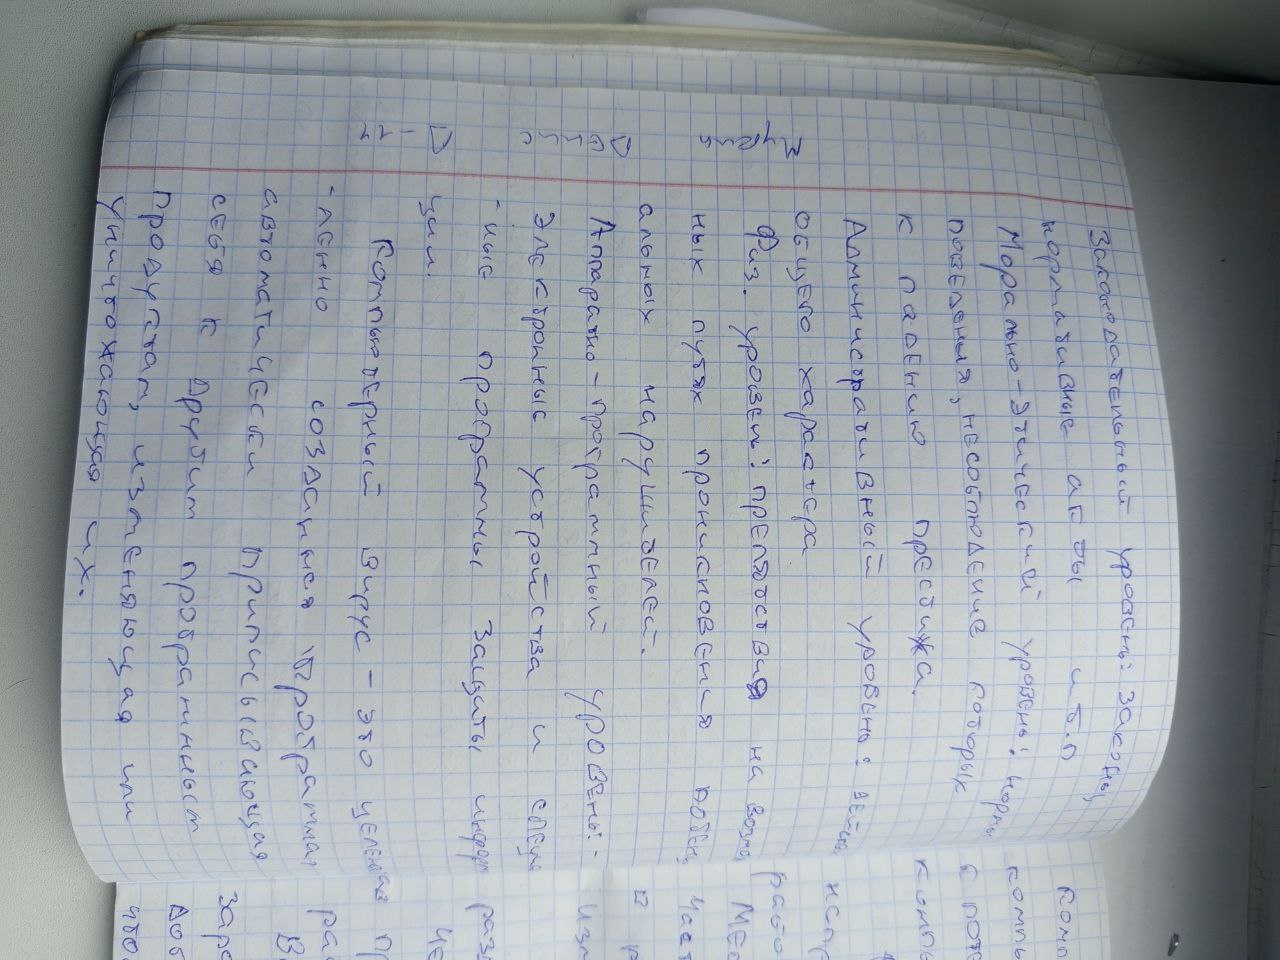 Законодательный уровень: законы,
нормативные акты и т.п
Морально-этический уровень: нормы
поведения, несоблюдение которых
к падению престижа.
Административный уровень: дейс
общего характера
Физ. уровень: препятствия на возмо
ных путях проникновения потен
альных нарушителей.
Аппаратно-программный уровень: -
электронные устройства и спец
-ные програмны защиты информ
ции.
Компьютерный вирус - это целенап
-ленно созданная программа
автоматически приписывающая
себя к другим программным
продуктам, изменяющая или
уничтожающая их.
комп
компь
к поте
компь
испр
рабо
част
изм
раз
ра
зара
доб
что